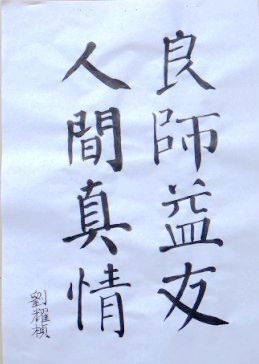 良師益友
人間真情
劉耀楨